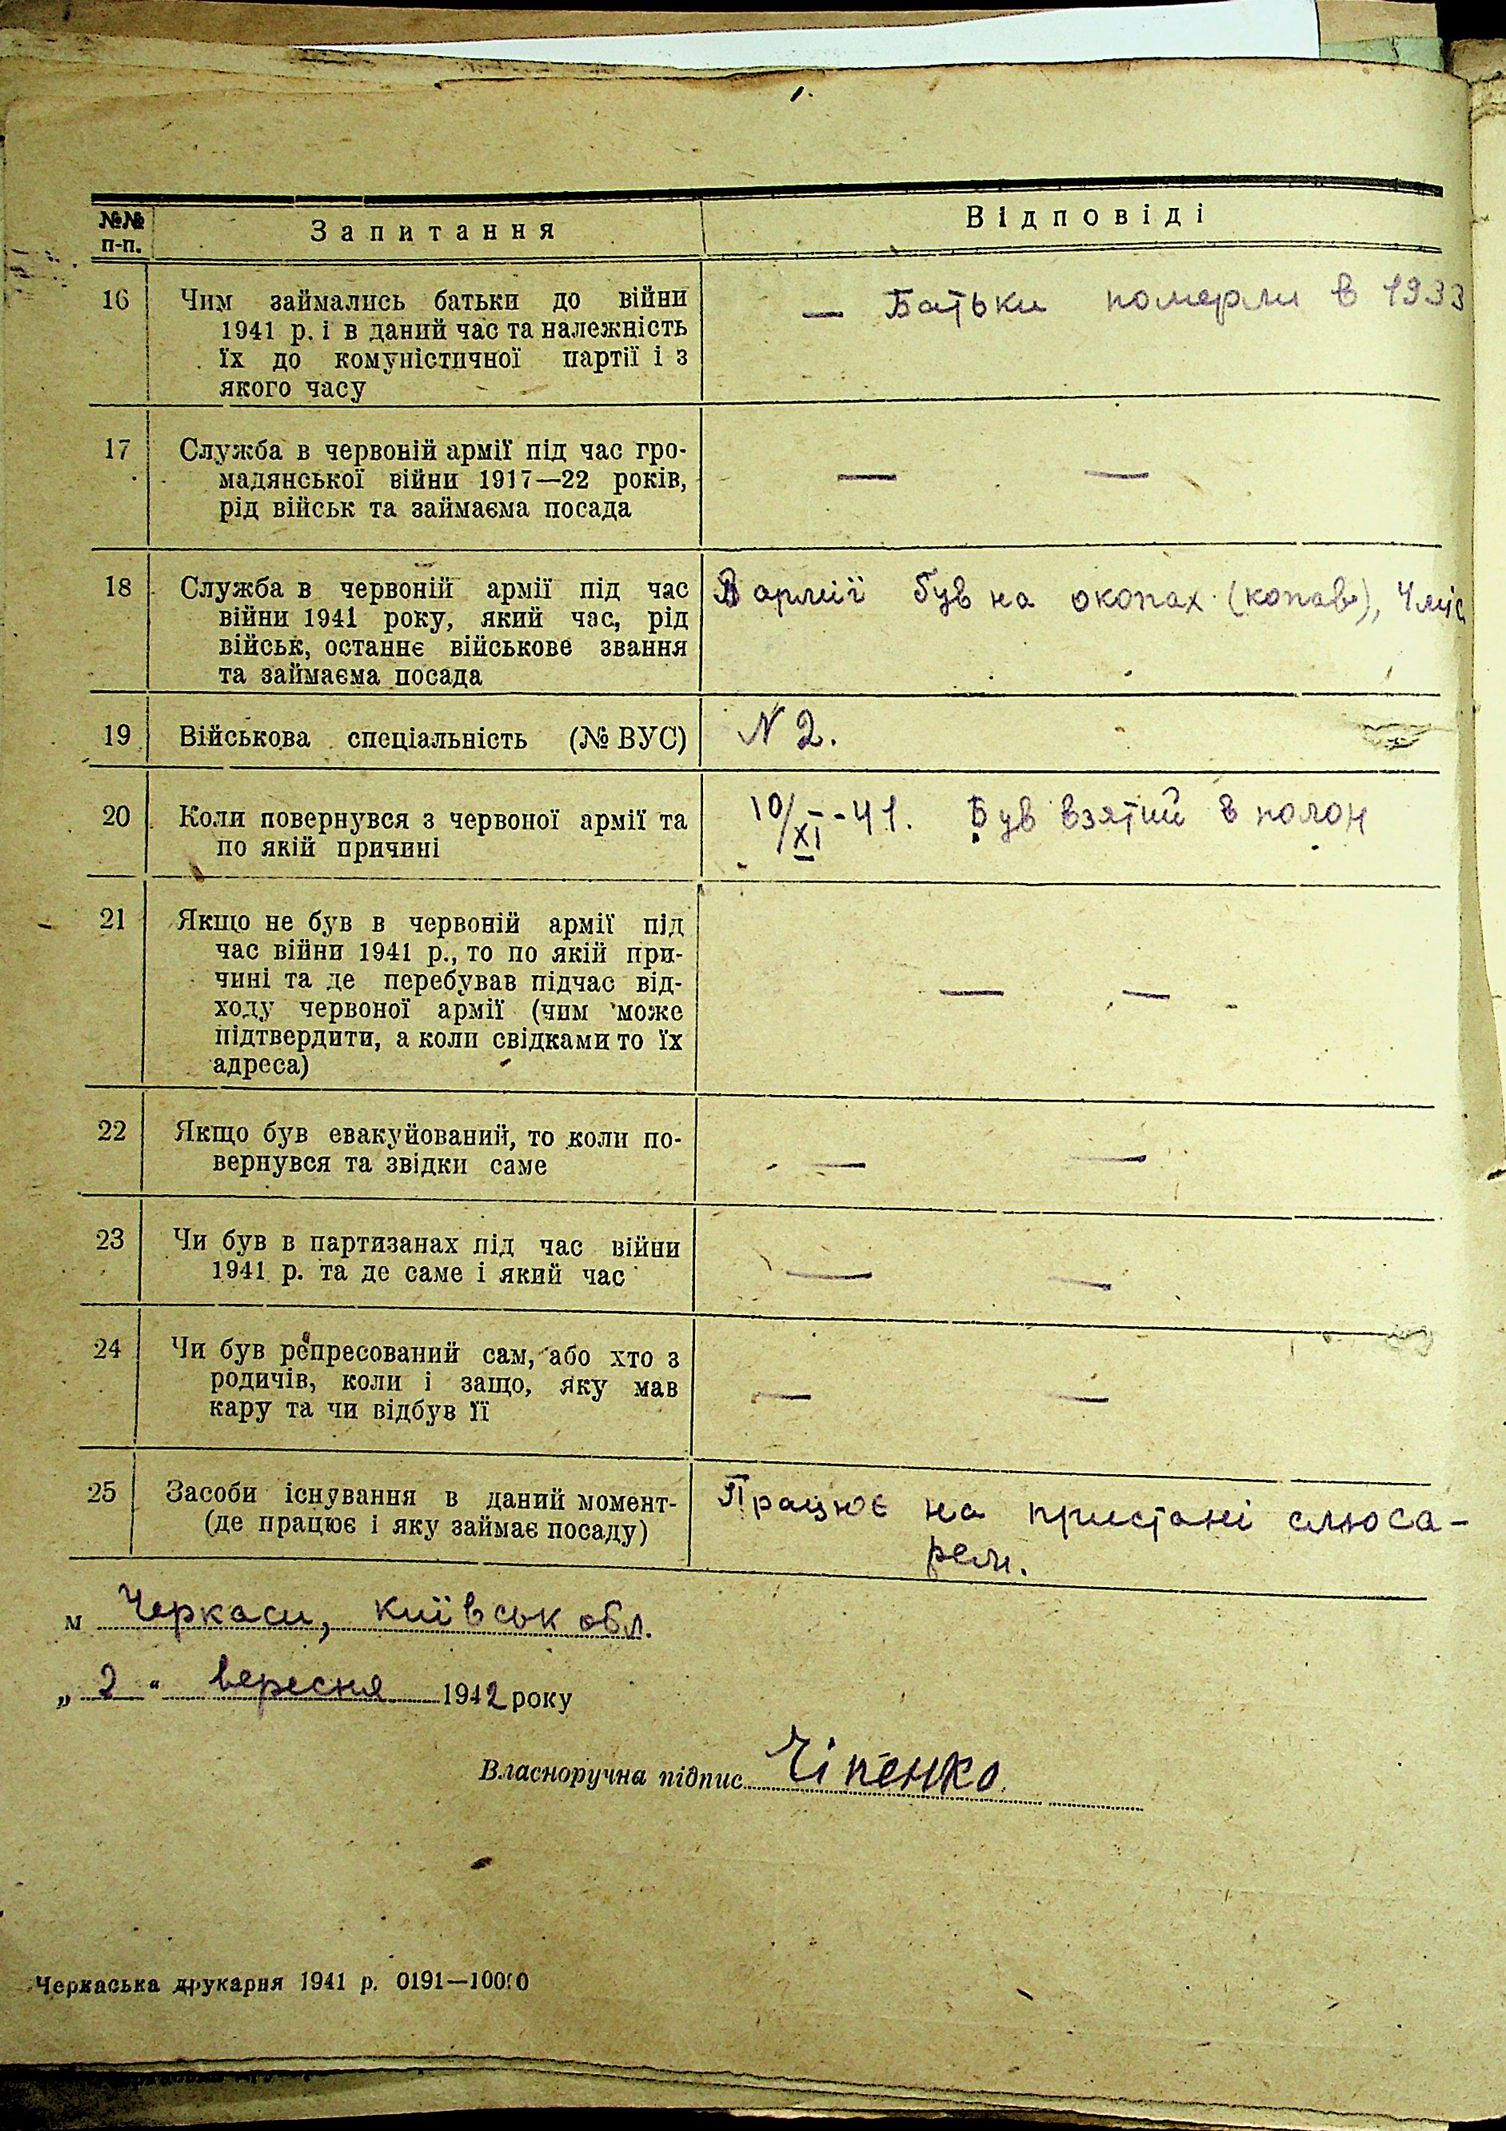 №№
п-п.
Запитання
Відповіді
16
Чим займались батьки до війни
1941 р. і в даний час та належність
їх до комуністичної партії і з
якого часу
— Батьки померли в 1933
17
Служба в червоній армії під час гро-
мадянської війни 1917—22 років,
рід військ та займаєма посада
— —
18
Служба в червоній армії під час
війни 1941 року, який час, рід
військ, останнє військове звання
та займаєма посада
В армії був на окопах (копав), 4 міс
19
Військова спеціальність (№ ВУС)
N 2.
20
Коли повернувся з червоної армії та
по якій причині
10/XI-41. Був взятий в полон
21
Якщо не був в червоній армії під
час війни 1941 р., то по якій при-
чині та де перебував підчас від-
ходу червоної армії (чим може
підтвердити, а коли свідками то їх
адреса)
— —
22
Якщо був евакуйований, то коли по-
вернувся та звідки саме
— —
23
Чи був в партизанах під час війни
1941 р. та де саме і який час
— —
24
Чи був репресований сам, або хто з
родичів, коли і защо, яку мав
кару та чи відбув її
— —
25
Засоби існування в даний момент-
(де працює і яку займає посаду)
Працює на пристані слюса-
рем.
м Черкаси, київськ обл.
„2“ вересня 1942 року
Власноручна підпис Чіпенко
Черкаська друкарня 1941 р. 0191—10000